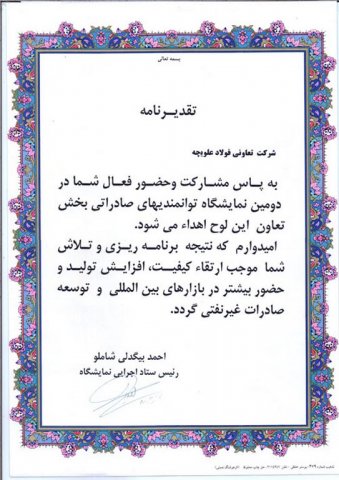 بسمه تعالی
تقدیرنامه
شرکت تعاونی فولاد علویچه
به پاس مشارکت وحضور فعال شما در
دومین نمایشگاه توانمندیهای صادراتی بخش
تعاون این لوح اهداء می شود.
امیدوارم که نتیجه برنامه ریزی و تلاش
شما موجب ارتقاء کیفیت، افزایش تولید و
حضور بیشتر در بازارهای بین المللی و توسعه
صادرات غیرنفتی گردد.
احمد بیگدلی شاملو
رئیس ستاد اجرایی نمایشگاه